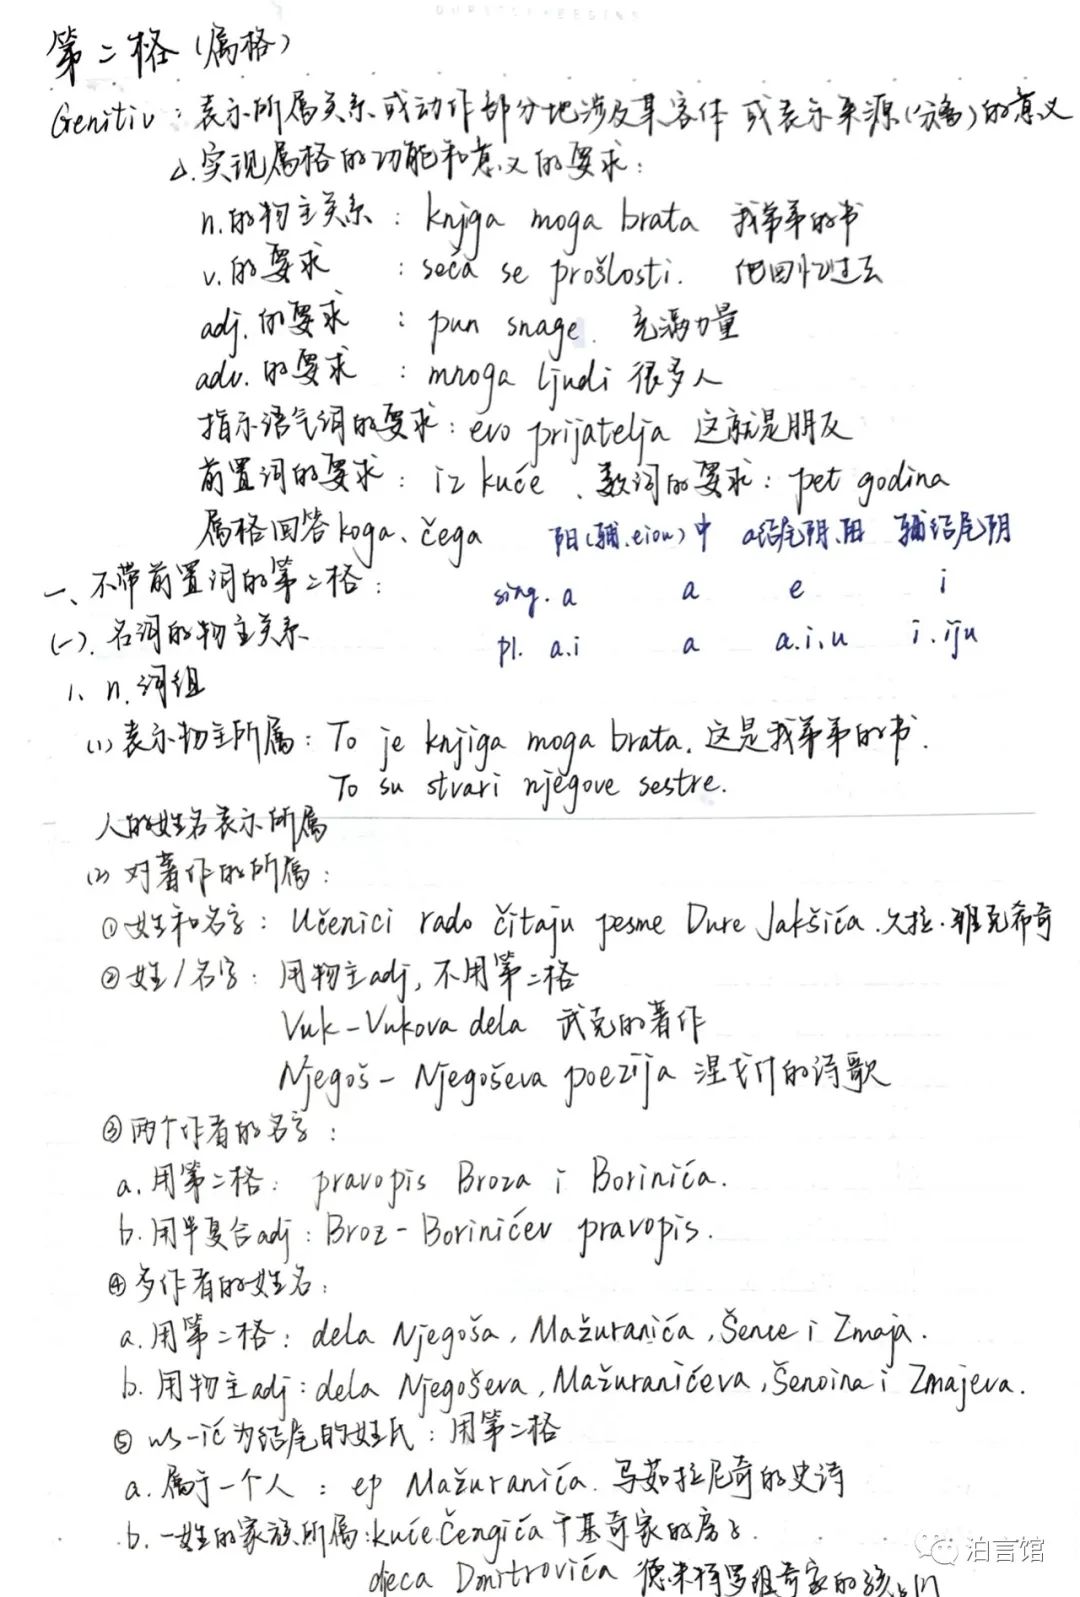 第二格(属格)
Genitiv：表示所属关系或动作部分地涉及某客体或表示来源(分离)的意义
△.实现属格的功能和意义的要求：
n.的物主关系：knjiga moga brata 我弟弟的书
v.的要求：seća se prošlosti. 他回忆过去
adj.的要求：pun snage. 充满力量
adv.的要求：mnoga ljudi 很多人
指示语气词的要求：evo prijatelja 这就是朋友
前置词的要求：iz kuće、数词的要求：pet godina
属格回答koga、čega 阳(辅.eiou)中 a结尾阴.阳 辅结尾阴
一、不带前置词的第二格： sing. a a e i
(一).名词的物主关系 pl. a.i a a.i.u i.iju
1、n.词组
(1)表示物主所属：To je knjiga moga brata. 这是我弟弟的书.
To su stvari njegove sestre.
人的姓名表示所属
(2)对著作的所属：
①姓和名字：Učenici rado čitaju pesme Đure Jakšića.久拉·雅克希奇
②姓/名字：用物主adj,不用第二格
Vuk-Vukova dela 武克的著作
Njegoš-Njegoševa poezija 涅戈什的诗歌
③两个作者的名字：
a.用第二格：pravopis Broza i Borinića.
b.用半复合adj：Broz-Borinićev pravopis.
④多作者的姓名：
a.用第二格：dela Njegoša,Mažuranića,Šenoe i Zmaja.
b.用物主adj：dela Njegoševa,Mažuranićeva,Šenoina i Zmajeva.
⑤ 以-ić为结尾的姓氏：用第二格
a.属于一个人：ep Mažuranića. 马茹拉尼奇的史诗
b.一姓的家族所属：kuće Čengića 千基奇家的房子.
djeca Dmitrovića 德米特罗维奇家的孩子们
泊言馆